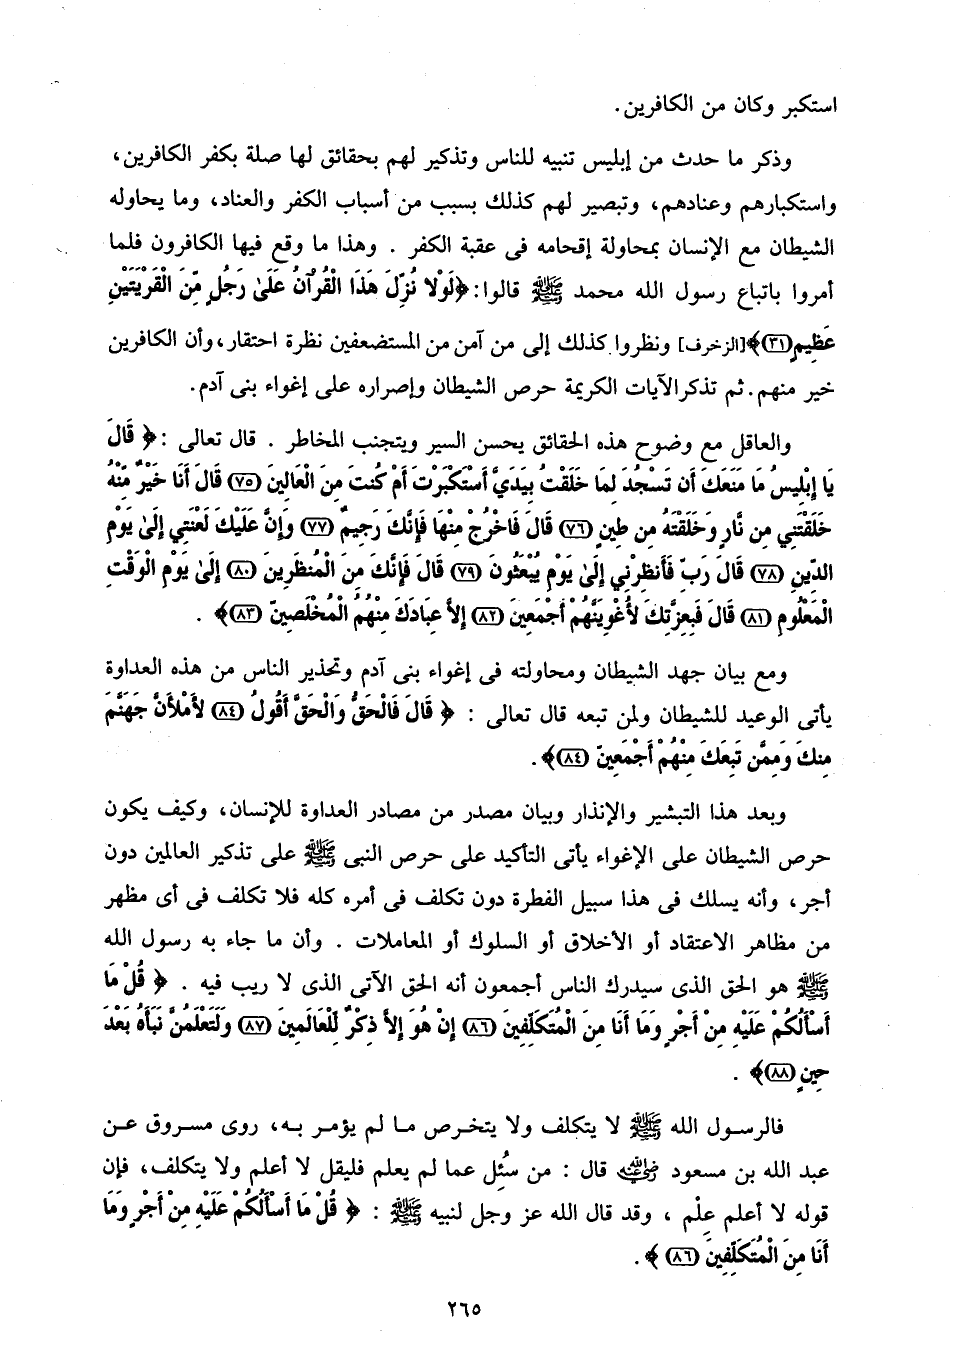 استكبر وكان من الكافرين.
وذكر ما حدث من إبليس تنبيه للناس وتذكير لهم بحقائق لها صلة بكفر الكافرين،
واستكبارهم وعنادهم، وتبصير لهم كذلك بسبب من أسباب الكفر والعناد، وما يحاوله
الشيطان مع الإنسان بمحاولة إقحامه فى عقبة الكفر . وهذا ما وقع فيها الكافرون فلما
أمروا باتباع رسول الله محمد ﷺ قالوا: ﴿لَوْلا نُزِّلَ هَذَا الْقُرْآنُ عَلَىٰ رَجُلٍ مِّنَ الْقَرْيَتَيْنِ
عَظِيمٍ (٣١)﴾[الزخرف] ونظروا كذلك إلى من آمن من المستضعفين نظرة احتقار، وأن الكافرين
خير منهم. ثم تذكر الآيات الكريمة حرص الشيطان وإصراره على إغواء بنى آدم.
والعاقل مع وضوح هذه الحقائق يحسن السير ويتجنب المخاطر . قال تعالى : ﴿ قَالَ
يَا إِبْلِيسُ مَا مَنَعَكَ أَن تَسْجُدَ لِمَا خَلَقْتُ بِيَدَيَّ أَسْتَكْبَرْتَ أَمْ كُنتَ مِنَ الْعَالِينَ (٧٥) قَالَ أَنَا خَيْرٌ مِّنْهُ
خَلَقْتَنِي مِن نَّارٍ وَخَلَقْتَهُ مِن طِينٍ (٧٦) قَالَ فَاخْرُجْ مِنْهَا فَإِنَّكَ رَجِيمٌ (٧٧) وَإِنَّ عَلَيْكَ لَعْنَتِي إِلَىٰ يَوْمِ
الدِّينِ (٧٨) قَالَ رَبِّ فَأَنظِرْنِي إِلَىٰ يَوْمِ يُبْعَثُونَ (٧٩) قَالَ فَإِنَّكَ مِنَ الْمُنظَرِينَ (٨٠) إِلَىٰ يَوْمِ الْوَقْتِ
الْمَعْلُومِ (٨١) قَالَ فَبِعِزَّتِكَ لأُغْوِيَنَّهُمْ أَجْمَعِينَ (٨٢) إِلاَّ عِبَادَكَ مِنْهُمُ الْمُخْلَصِينَ (٨٣)﴾ .
ومع بيان جهد الشيطان ومحاولته فى إغواء بنى آدم وتحذير الناس من هذه العداوة
يأتى الوعيد للشيطان ولمن تبعه قال تعالى : ﴿ قَالَ فَالْحَقُّ وَالْحَقَّ أَقُولُ (٨٤) لأَمْلأَنَّ جَهَنَّمَ
مِنكَ وَمِمَّن تَبِعَكَ مِنْهُمْ أَجْمَعِينَ (٨٤)﴾.
وبعد هذا التبشير والإنذار وبيان مصدر من مصادر العداوة للإنسان، وكيف يكون
حرص الشيطان على الإغواء يأتى التأكيد على حرص النبى ﷺ على تذكير العالمين دون
أجر، وأنه يسلك فى هذا سبيل الفطرة دون تكلف فى أمره كله فلا تكلف فى أى مظهر
من مظاهر الاعتقاد أو الأخلاق أو السلوك أو المعاملات . وأن ما جاء به رسول الله
ﷺ هو الحق الذى سيدرك الناس أجمعون أنه الحق الآتى الذى لا ريب فيه . ﴿ قُلْ مَا
أَسْأَلُكُمْ عَلَيْهِ مِنْ أَجْرٍ وَمَا أَنَا مِنَ الْمُتَكَلِّفِينَ (٨٦) إِنْ هُوَ إِلاَّ ذِكْرٌ لِّلْعَالَمِينَ (٨٧) وَلَتَعْلَمُنَّ نَبَأَهُ بَعْدَ
حِينٍ (٨٨)﴾ .
فالرسول الله ﷺ لا يتكلف ولا يتخرص ما لم يؤمر به، روى مسروق عن
عبد الله بن مسعود رضي الله عنه قال : من سُئِل عما لم يعلم فليقل لا أعلم ولا يتكلف، فإن
قوله لا أعلم عِلْم ، وقد قال الله عز وجل لنبيه ﷺ : ﴿ قُلْ مَا أَسْأَلُكُمْ عَلَيْهِ مِنْ أَجْرٍ وَمَا
أَنَا مِنَ الْمُتَكَلِّفِينَ (٨٦) ﴾.
٢٦٥